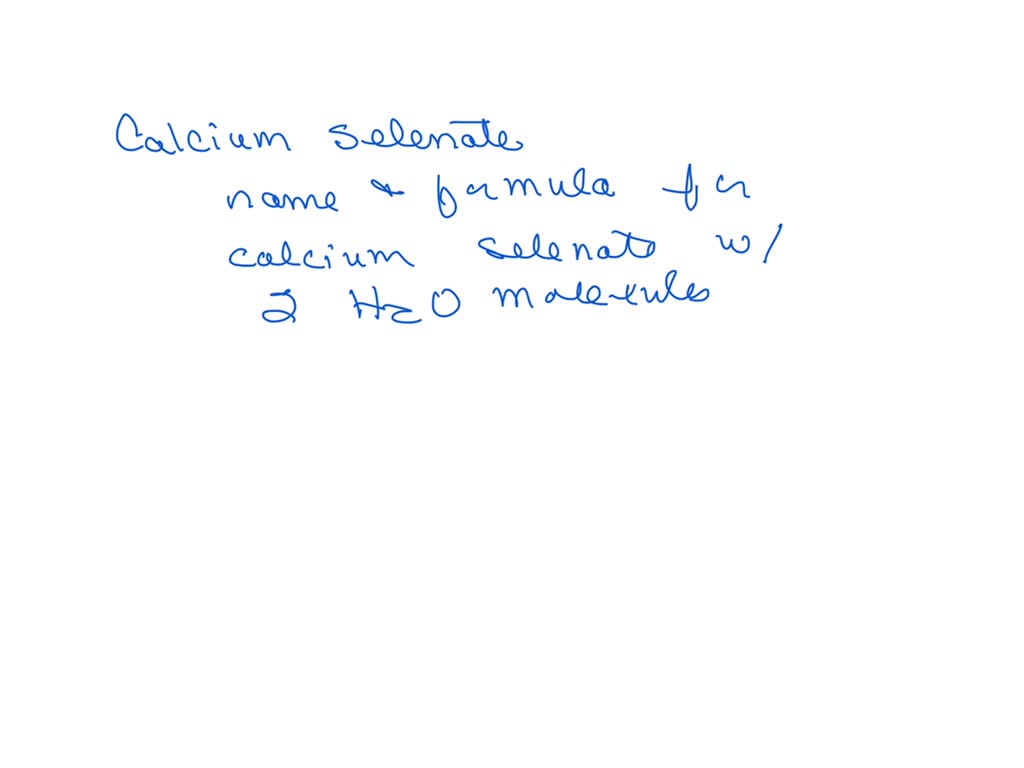 Calcium selenate
name & formula for
calcium selenate w/
2 H2O molecules